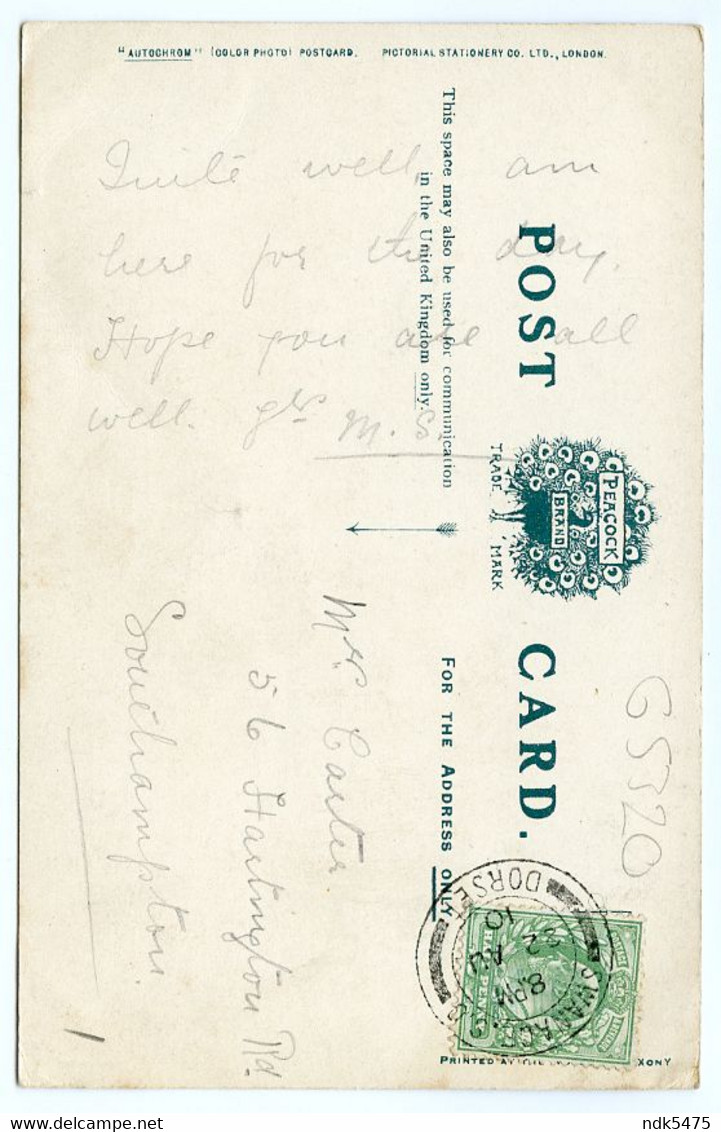 "AUTOCHROM" (COLOR PHOTO) POSTCARD. PICTORIAL STATIONERY CO. LTD., LONDON.
This space may also be used for communication
in the United Kingdom only.
POST CARD.
TRADE MARK
PEACOCK
BRAND
FOR THE ADDRESS ONLY
Quite well, am
here for the day.
Hope you are all
well.
M. S.
Mrs Carter
56 Hartington Rd
Southampton.
G5520
SWANAGE
8 PM
AU 22
10
DORSET
PRINTED AT THE
XONY
ndk5475
www.delcampe.net